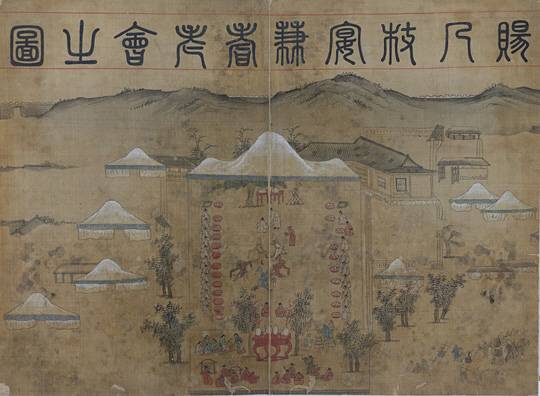 賜几杖宴兼耆老會之圖